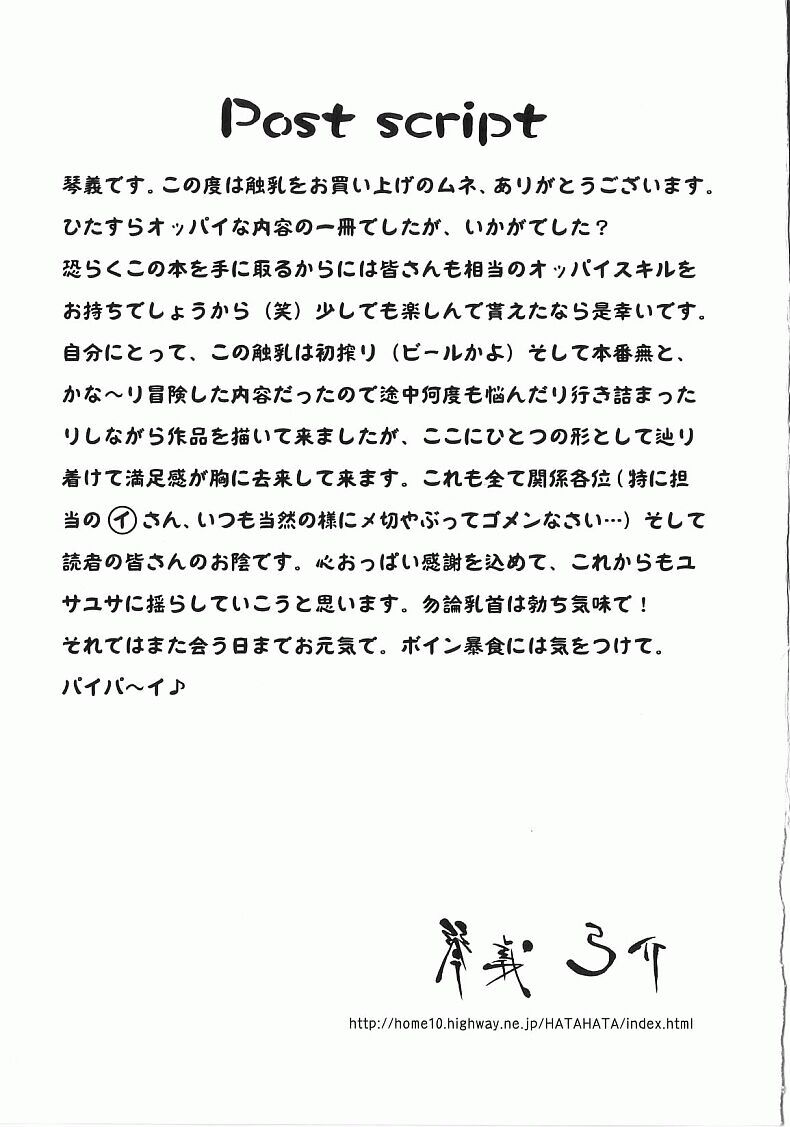 Post script
琴義です。この度は触乳をお買い上げのムネ、ありがとうございます。
ひたすらオッパイな内容の一冊でしたが、いかがでした?
恐らくこの本を手に取るからには皆さんも相当のオッパイスキルを
お持ちでしょうから(笑)少しでも楽しんで貰えたなら是幸いです。
自分にとって、この触乳は初搾り(ビールかよ)そして本番無と、
かな〜り冒険した内容だったので途中何度も悩んだり行き詰まった
りしながら作品を描いて来ましたが、ここにひとつの形として辿り
着けて満足感が胸に去来して来ます。これも全て関係各位(特に担
当の㋑さん、いつも当然の様に〆切やぶってゴメンなさい…)そして
読者の皆さんのお陰です。心おっぱい感謝を込めて、これからもユ
サユサに揺らしていこうと思います。勿論乳首は勃ち気味で!
それではまた会う日までお元気で。ボイン暴食には気をつけて。
パイパ〜イ♪
琴義 弓介
http://home10.highway.ne.jp/HATAHATA/index.html